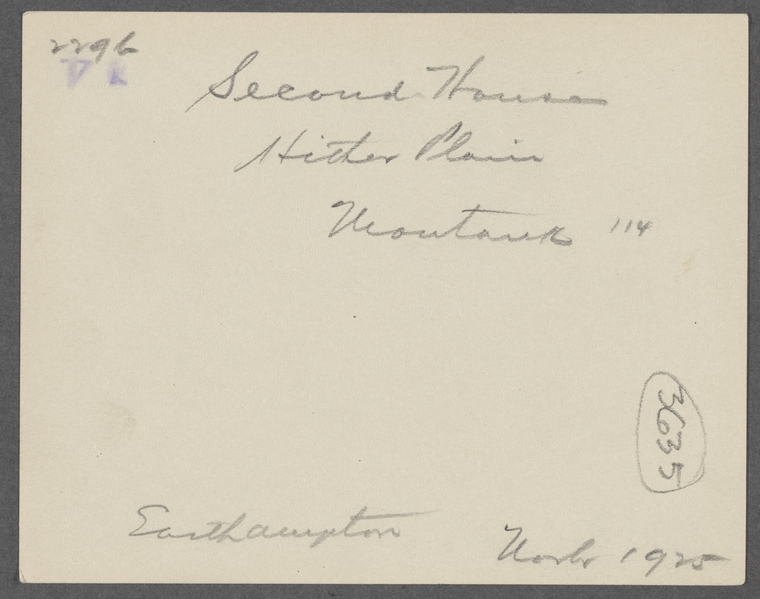 229b
Second House
Hither Plain
Montauk 114
3635
Easthampton
Novbr 1925